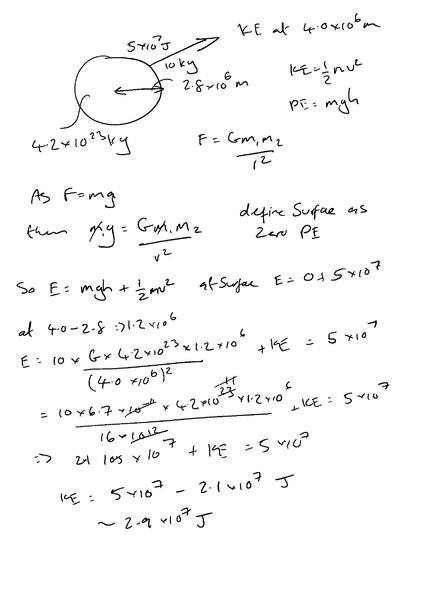 KE at 4.0x10⁶m
5x10⁷J
10kg
2.8x10⁶m
KE=½mv²
PE=mgh
4.2x10²³kg
F = Gm₁m₂/r²
As F=mg
then mg = Gm₁m₂/r²
define Surface as
Zero PE
So E = mgh + ½mv² at Surface E = 0 + 5x10⁷
at 4.0-2.8 => 1.2x10⁶
E = 10 x G x 4.2x10²³ x 1.2x10⁶/(4.0x10⁶)² + KE = 5x10⁷
= 10x6.7x10⁻¹¹x4.2x10²³x1.2x10⁶/16x10¹² + KE = 5x10⁷
=> x10⁷ + KE = 5x10⁷
KE = 5x10⁷ - 2.1x10⁷ J
~ 2.9x10⁷J